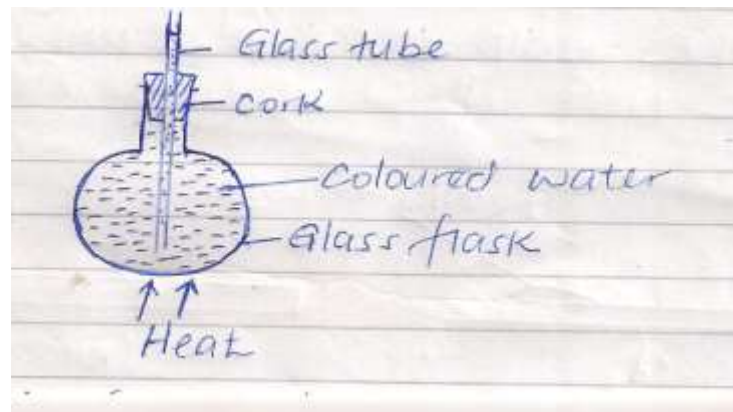 Glass tube
Cork
Coloured water
Glass flask
Heat